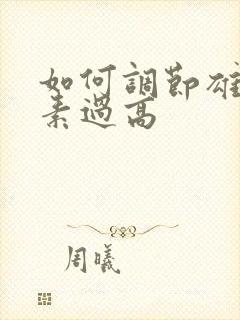 如何調節雄
素過高
周曦